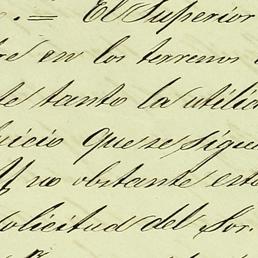 e. = El Superior
re en los terrenos
te tanto la utilid
uicio que se sigue
Y no obstante esto
solicitud del Sor.